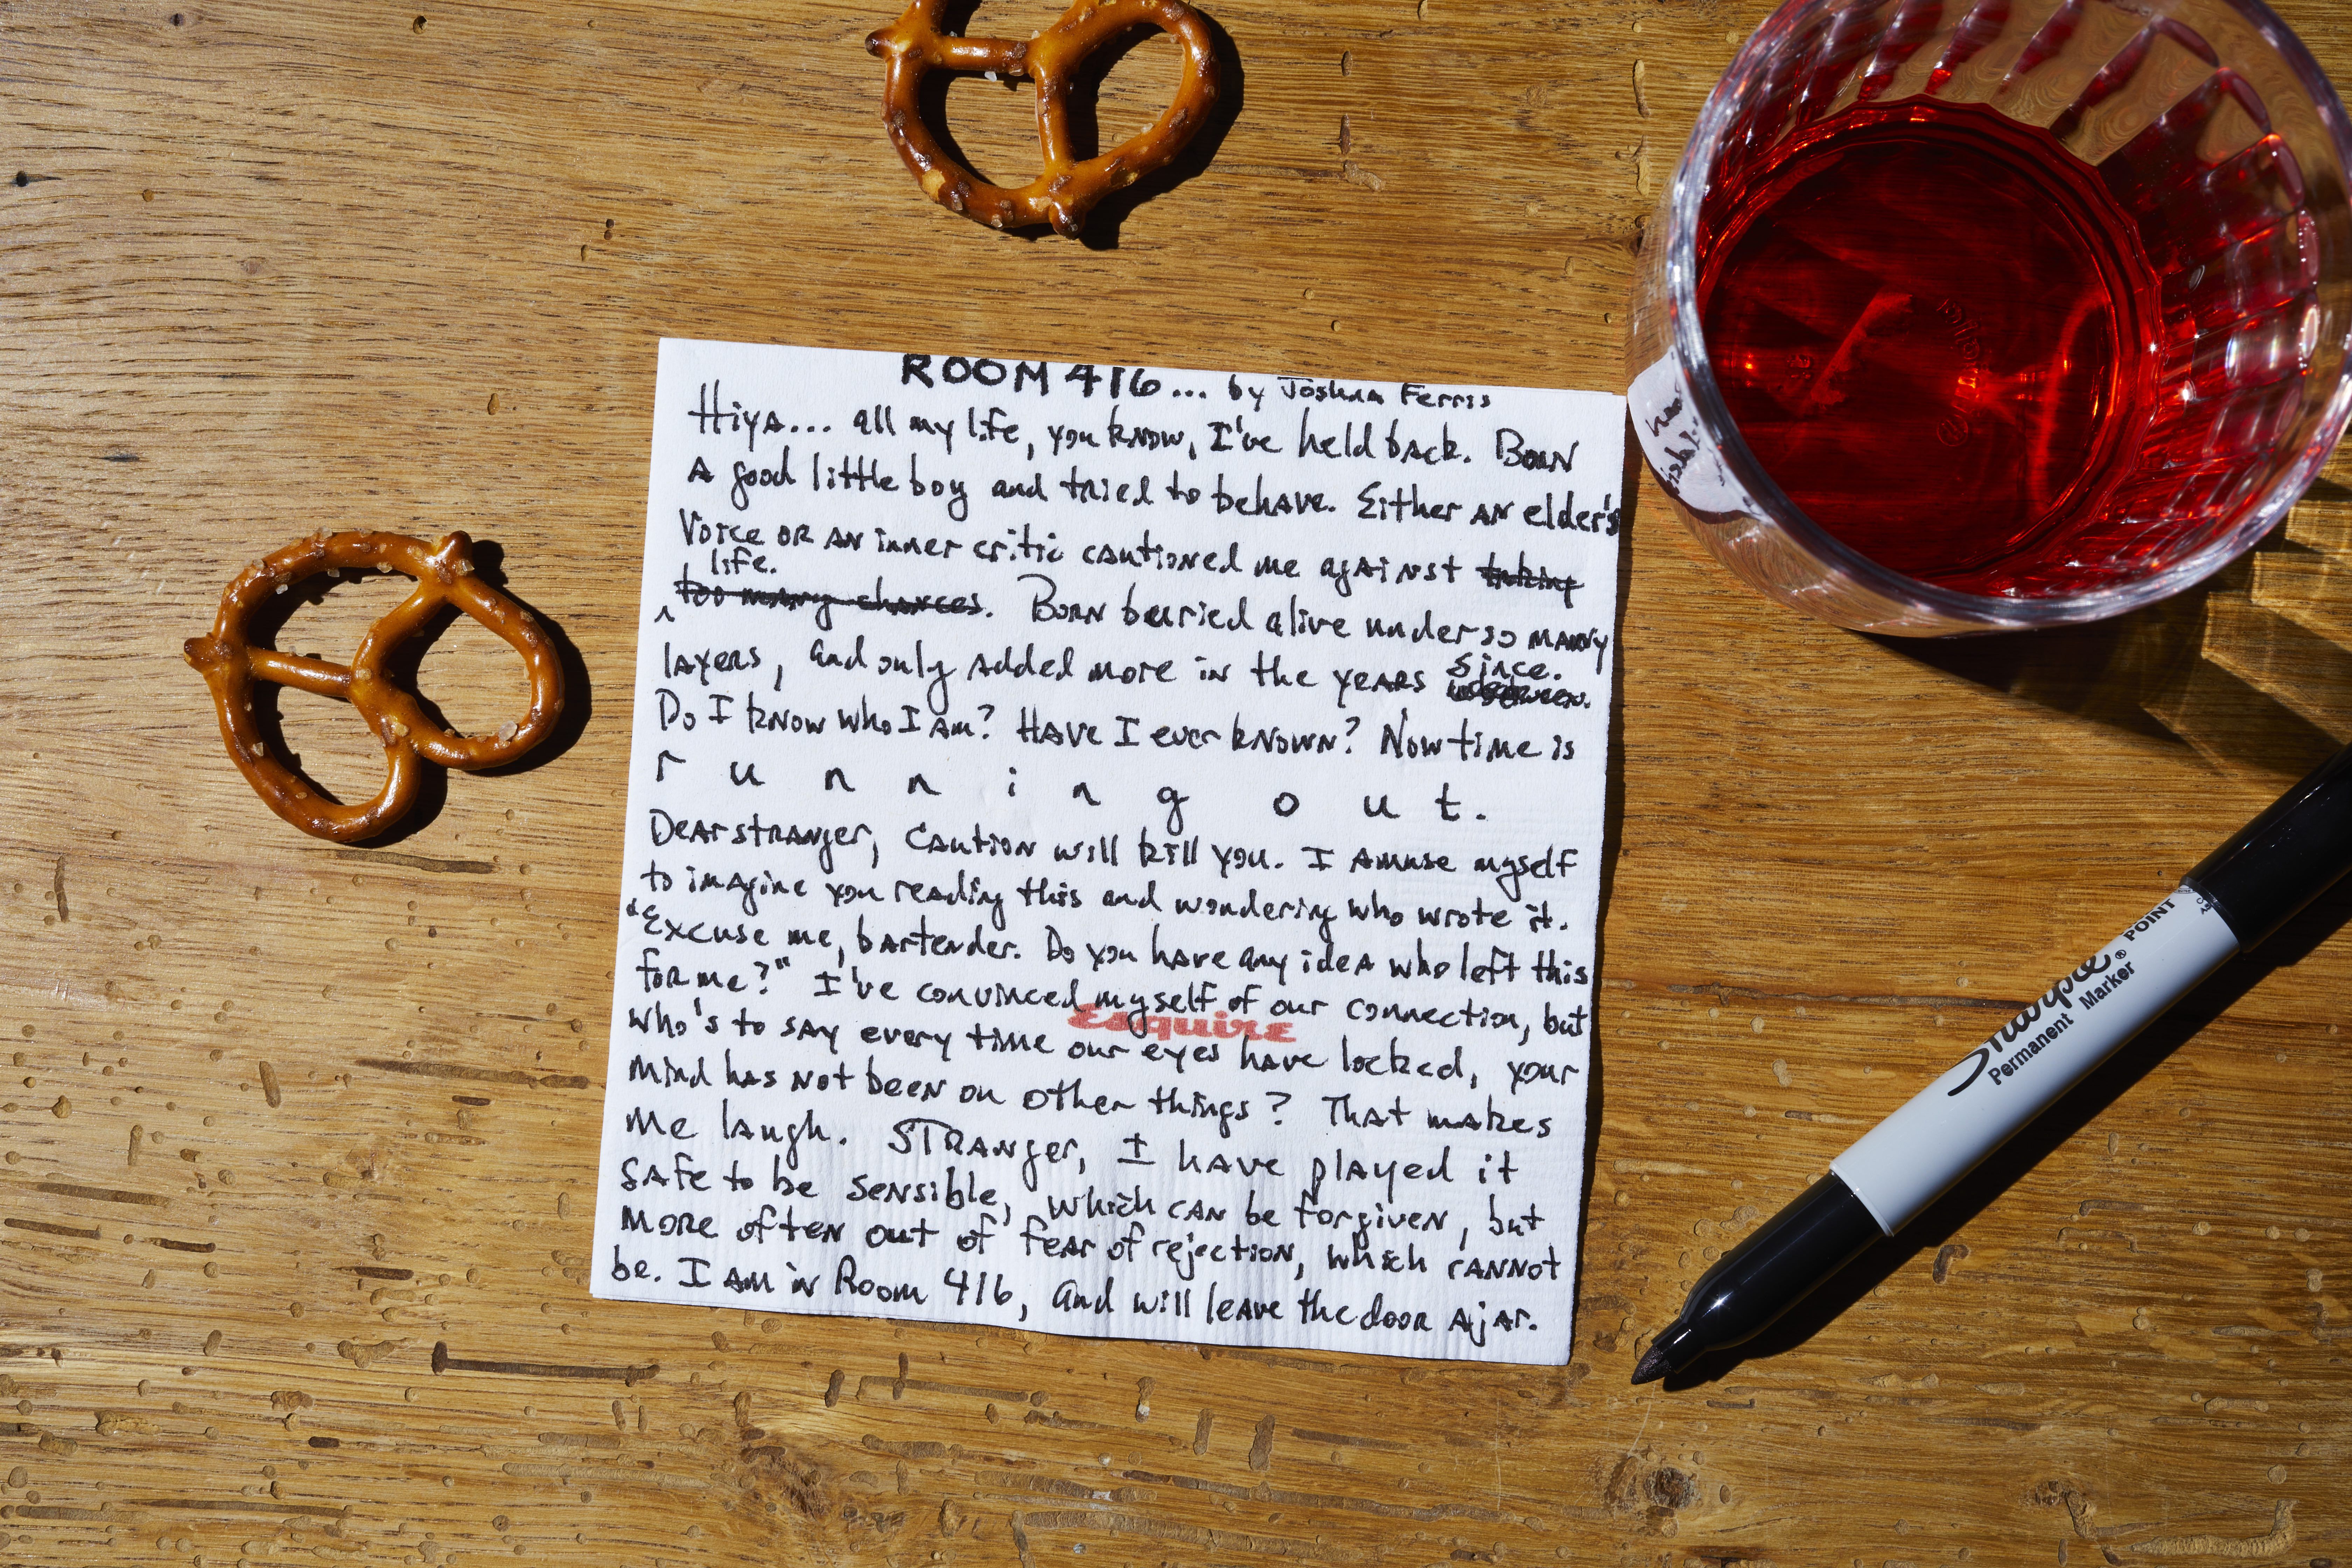 ROOM 416... by Joshua Ferris
Hiya... all my life, you know, I've held back. Born
a good little boy and tried to behave. Either an elder's
voice or an inner critic cautioned me against taking
life.
too many chances. Born buried alive under so many
layers, and only added more in the years since.
Do I know who I am? Have I ever known? Now time is
r u n n i n g o u t.
Dear stranger, caution will kill you. I amuse myself
to imagine you reading this and wondering who wrote it.
"Excuse me, bartender. Do you have any idea who left this
for me?" I've convinced myself of our connection, but
Esquire
who's to say every time our eyes have locked, your
mind has not been on other things? That makes
me laugh. Stranger, I have played it
safe to be sensible, which can be forgiven, but
more often out of fear of rejection, which cannot
be. I am in Room 416, and will leave the door ajar.
Sharpie® POINT
Permanent Marker